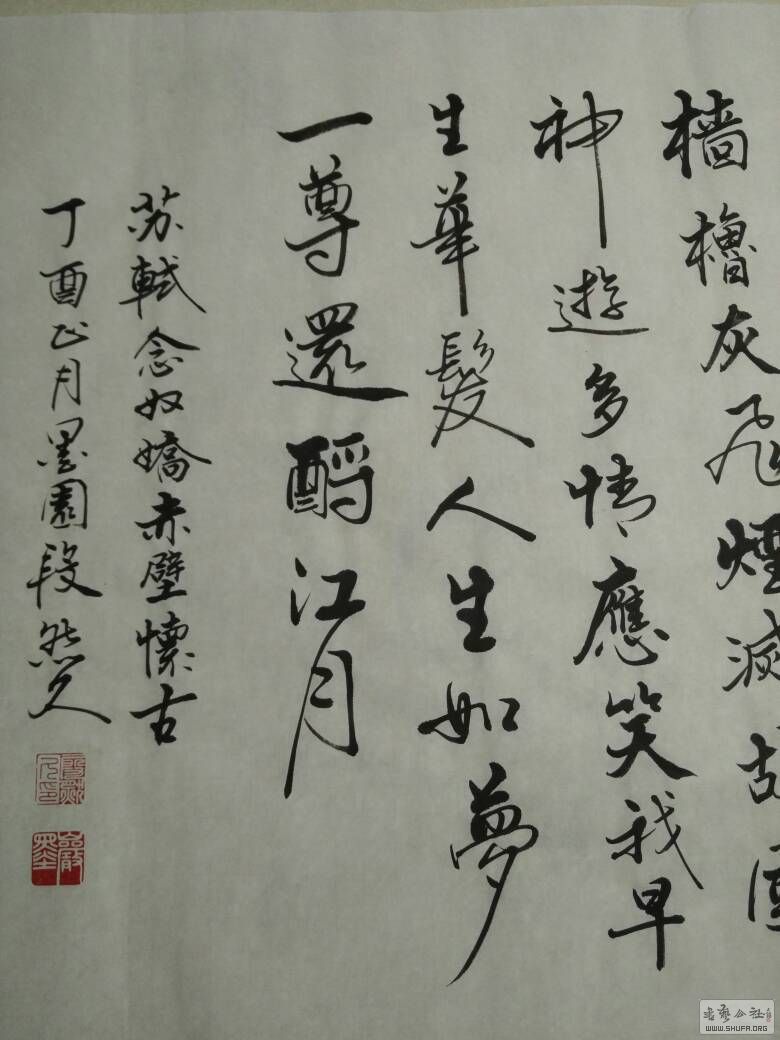 檣櫓灰飛煙滅故国
神遊多情應笑我早
生華髮人生如夢
一尊還酹江月
苏軾念奴嬌赤壁懷古
丁酉正月墨園段然人
書藝公社
WWW.SHUFA.ORG